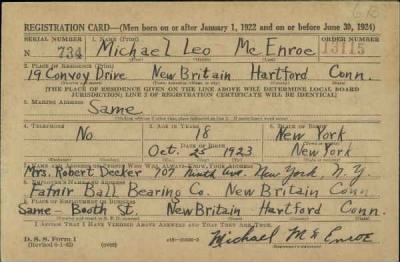 REGISTRATION CARD—(Men born on or after January 1, 1922 and on or before June 30, 1924)
SERIAL NUMBER 1. NAME (Print) ORDER NUMBER
N 734 Michael Leo Mc Enroe 13115
2. PLACE OF RESIDENCE (Print)
19 Convoy Drive New Britain Hartford Conn.
[THE PLACE OF RESIDENCE GIVEN ON THE LINE ABOVE WILL DETERMINE LOCAL BOARD
JURISDICTION; LINE 2 OF REGISTRATION CERTIFICATE WILL BE IDENTICAL]
3. MAILING ADDRESS
Same
4. TELEPHONE 5. AGE IN YEARS 6. PLACE OF BIRTH
No 18 New York
DATE OF BIRTH
Oct. 25 1923 New York
7. NAME AND ADDRESS OF PERSON WHO WILL ALWAYS KNOW YOUR ADDRESS
Mrs. Robert Decker 707 Ninth Ave. New York, N.Y.
8. EMPLOYER'S NAME AND ADDRESS
Fafnir Ball Bearing Co. New Britain Conn
9. PLACE OF EMPLOYMENT OR BUSINESS
Same - Booth St. New Britain Hartford Conn.
I AFFIRM THAT I HAVE VERIFIED ABOVE ANSWERS AND THAT THEY ARE TRUE.
D. S. S. Form 1 (over)
Michael Mc Enroe